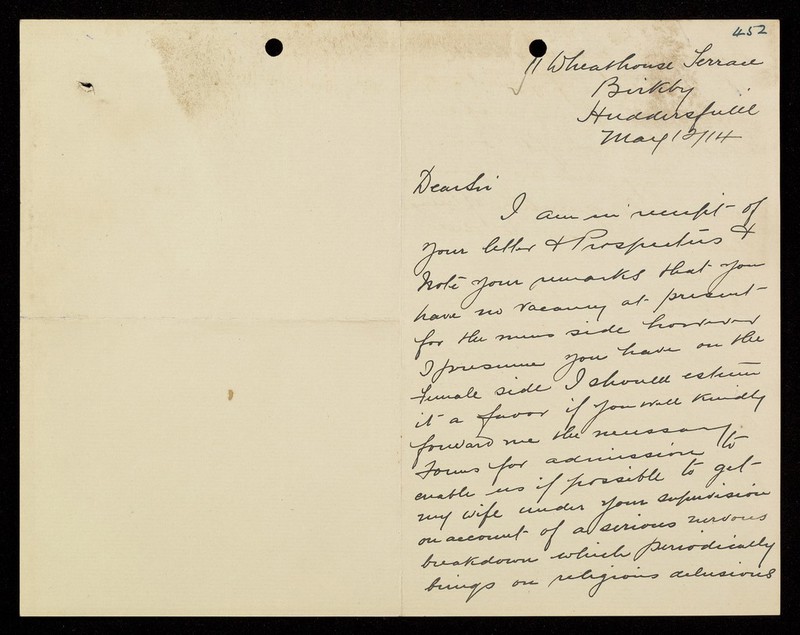 452
11 Wheathouse Terrace
Birkby
Huddersfield
May 12/14
Dear Sir
I am in receipt of
your letter & Prospectus &
Note your remarks that you
have no vacancy at present
for the mens side however
I presume you have on the
female side I should esteem
it a favor if you will kindly
forward me the necessary
Forms for admission to
enable us if possible to get
my wife under your supervision
on account of a serious nervous
breakdown which periodically
brings on religious delusions